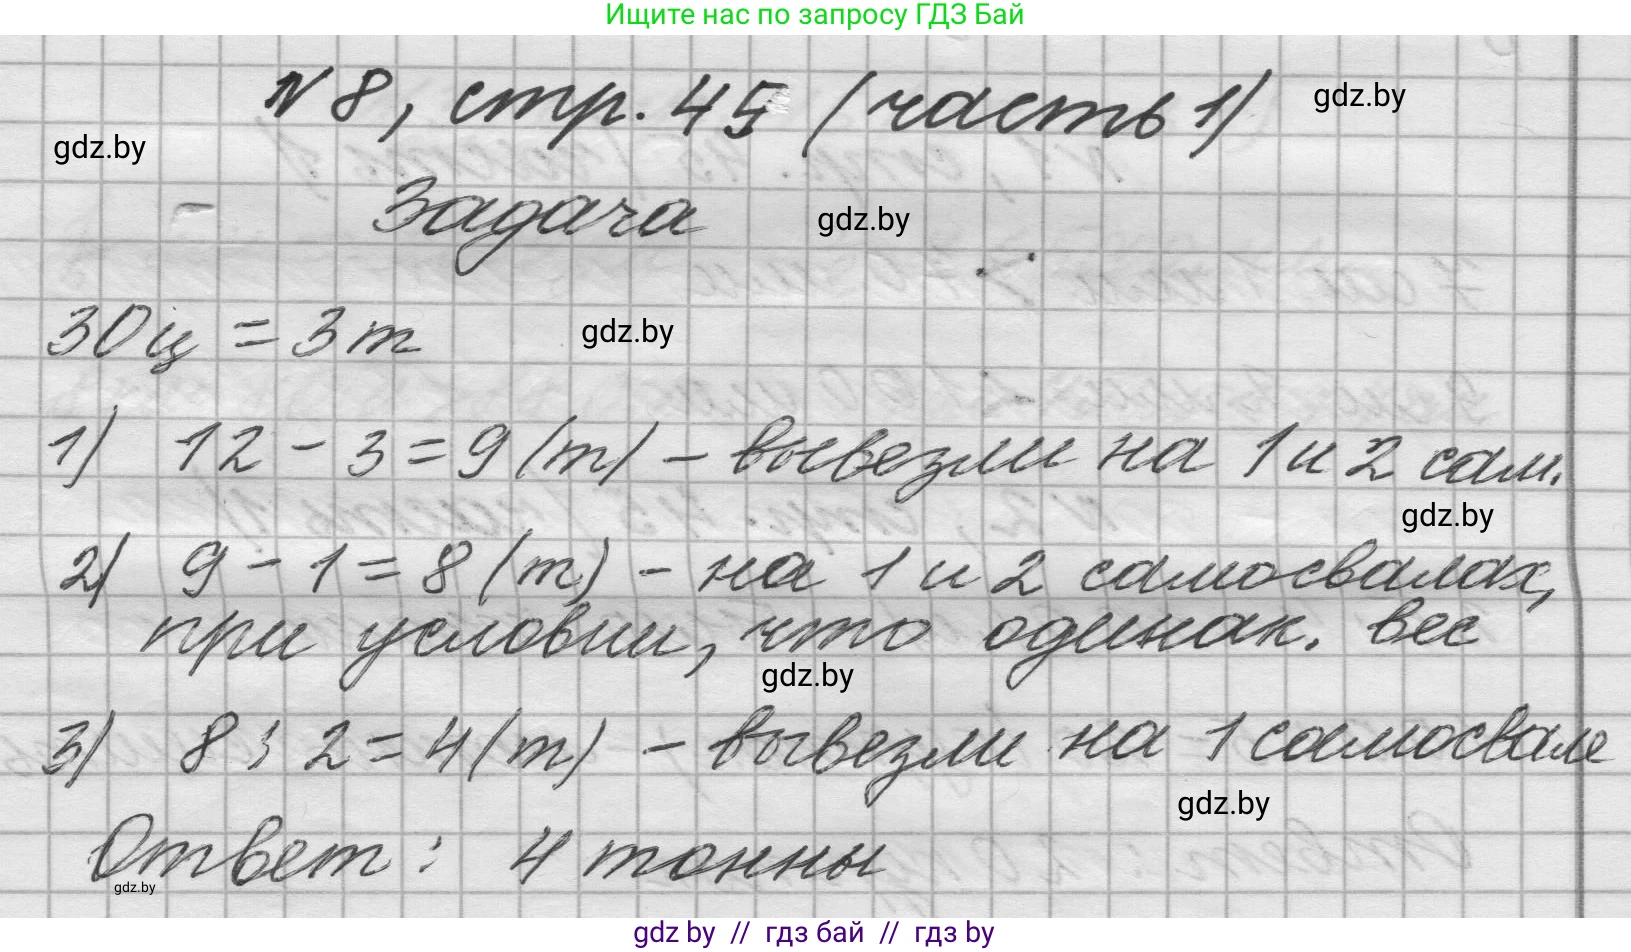 Ищите нас по запросу ГДЗ Бай
№ 8, стр. 45 (часть 1)
gdz.by
gdz.by
Задача
gdz.by
30 ц = 3 т
gdz.by
1) 12 - 3 = 9 (т) - вывезли на 1 и 2 сам.
gdz.by
2) 9 - 1 = 8 (т) - на 1 и 2 самосвалах,
при условии, что одинак. вес
gdz.by
3) 8 : 2 = 4 (т) - вывезли на 1 самосвале
gdz.by
Ответ: 4 тонны
gdz.by
gdz by // гдз бай // гдз by